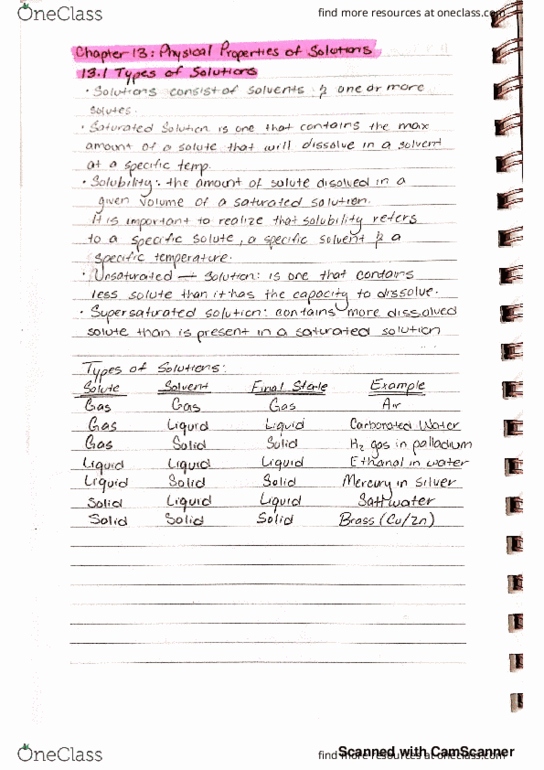 OneClass
find more resources at oneclass.com
Chapter 13: Physical Properties of Solutions
13.1 Types of Solutions
• Solutions consist of solvents & one or more
solutes.
• Saturated Solution is one that contains the max
amount of a solute that will dissolve in a solvent
at a specific temp.
• Solubility: the amount of solute disolved in a
given volume of a saturated solution.
It is important to realize that solubility refers
to a specific solute, a specific solvent & a
specific temperature.
• Unsaturated Solution: is one that contains
less solute than it has the capacity to dissolve.
• Supersaturated solution: contains more dissolved
solute than is present in a saturated solution
Types of Solutions:
Solute Solvent Final State Example
Gas Gas Gas Air
Gas Liquid Liquid Carbonated Water
Gas Solid Solid H₂ gas in palladium
Liquid Liquid Liquid Ethanol in water
Liquid Solid Solid Mercury in Silver
Solid Liquid Liquid Saltwater
Solid Solid Solid Brass (Cu/Zn)
OneClass
find more resources at oneclass.com
Scanned with CamScanner